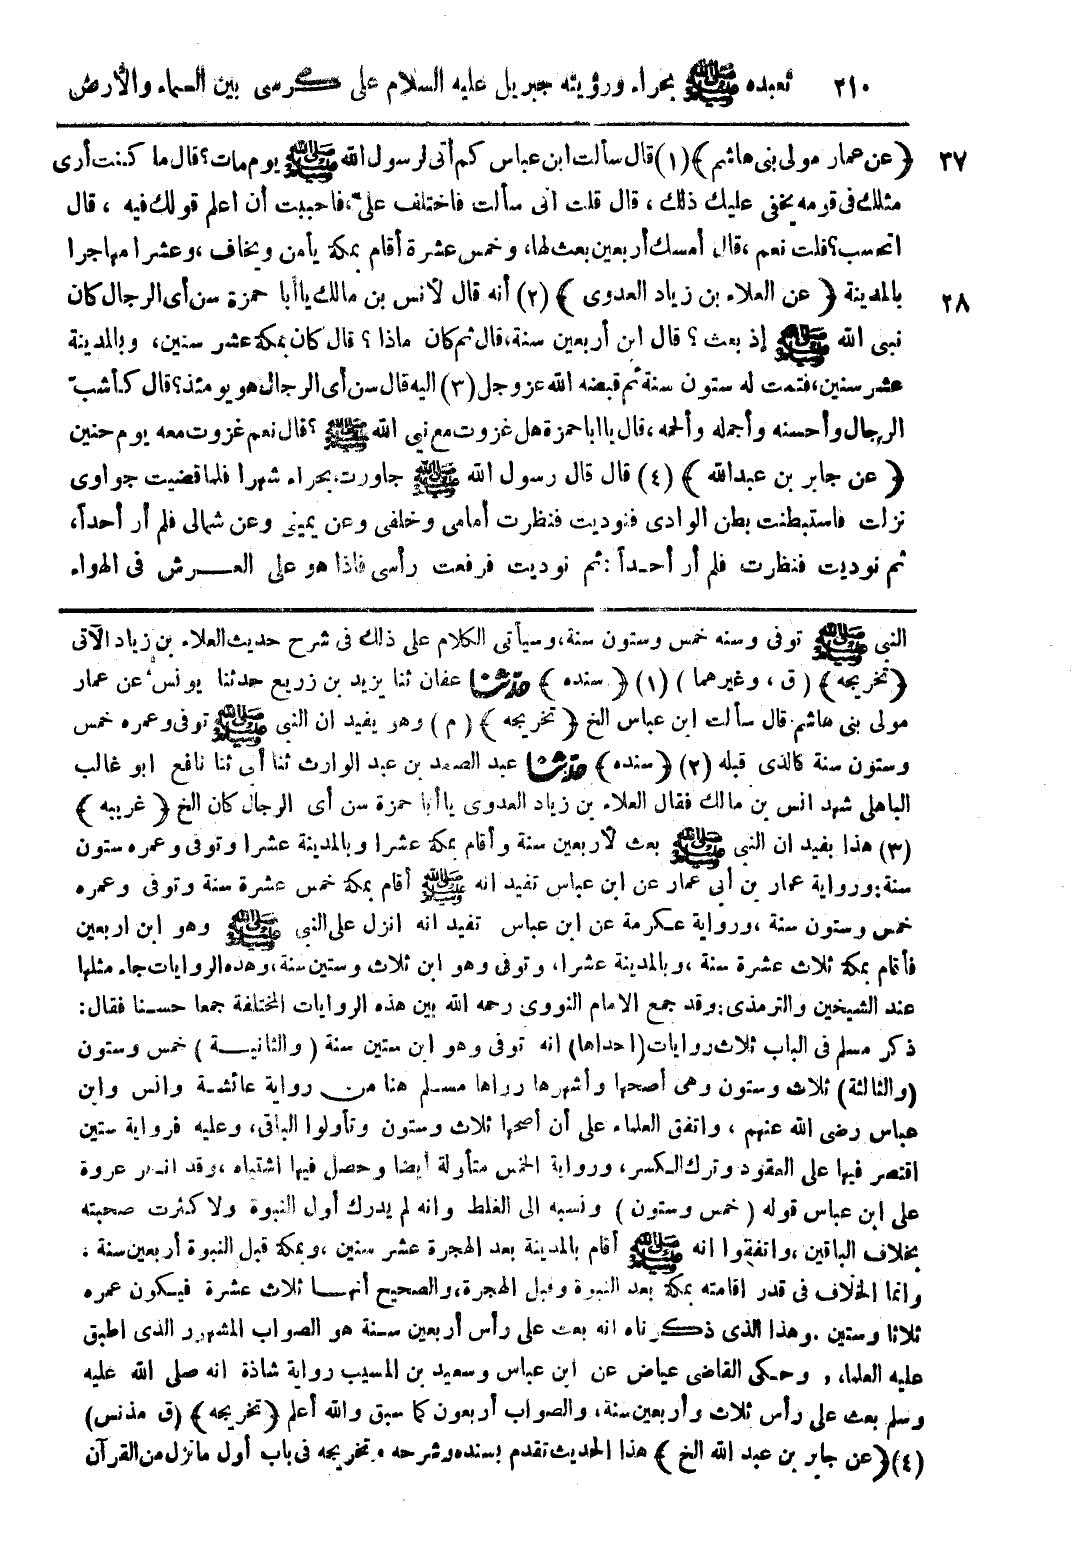 ٢١٠ تعبده ﷺ بحراء ورؤيته جبريل عليه السلام على كرسى بين السماء والأرض
٣٧ ﴿عن عمار مولى بنى هاشم﴾ (١) قال سألت ابن عباس كم أتى لرسول الله ﷺ يوم مات؟ قال ما كنت أرى
مثلك فى قومه يخفى عليك ذلك، قال قلت انى سألت فاختلف علىّ، فاحببت أن أعلم قولك فيه، قال
اتحسب؟ قلت نعم، قال أمسك أربعين بعث لها، وخمس عشرة أقام بمكة يأمن ويخاف، وعشرا مهاجرا
٢٨ بالمدينة ﴿عن العلاء بن زياد العدوى﴾ (٢) أنه قال لأنس بن مالك يا أبا حمزة سن أى الرجال كان
نبى الله ﷺ إذ بعث؟ قال ابن أربعين سنة، قال ثم كان ماذا؟ قال كان بمكة عشر سنين، وبالمدينة
عشر سنين، فتمت له ستون سنة ثم قبضه الله عز وجل (٣) اليه قال سن أى الرجال هو يومئذ؟ قال كأشبّ
الرجال وأحسنه وأجمله وألحمه، قال يا ابا حمزة هل غزوت مع نبي الله ﷺ؟ قال نعم غزوت معه يوم حنين
﴿عن جابر بن عبدالله﴾ (٤) قال قال رسول الله ﷺ جاورت بحراء شهرا فلما قضيت جوارى
نزلت فاستبطنت بطن الوادى فنوديت فنظرت أمامى وخلفى وعن يمينى وعن شمالى فلم أر أحداً،
ثم نوديت فنظرت فلم أر أحداً: ثم نوديت فرفعت رأسى فاذا هو على العرش فى الهواء
النبى ﷺ توفى وسنه خمس وستون سنة، وسيأتى الكلام على ذلك فى شرح حديث العلاء بن زياد الآتى
﴿تخريجه﴾ (ق، وغيرهما) (١) ﴿سنده﴾ حدثنا عفان ثنا يزيد بن زريع حدثنا يونس عن عمار
مولى بنى هاشم قال سألت ابن عباس الخ ﴿تخريجه﴾ (م) وهو يفيد ان النبي ﷺ توفى وعمره خمس
وستون سنة كالذى قبله (٢) ﴿سنده﴾ حدثنا عبد الصمد بن عبد الوارث ثنا أبى ثنا نافع ابو غالب
الباهلى شهد انس بن مالك فقال العلاء بن زياد العدوى يا أبا حمزة سن أى الرجال كان الخ ﴿غريبه﴾
(٣) هذا يفيد ان النبى ﷺ بعث لأربعين سنة وأقام بمكة عشرا وبالمدينة عشرا وتوفى وعمره ستون
سنة: ورواية عمار بن أبى عمار عن ابن عباس تفيد انه ﷺ أقام بمكة خمس عشرة سنة وتوفى وعمره
خمس وستون سنة، ورواية عكرمة عن ابن عباس تفيد انه انزل على النبى ﷺ وهو ابن اربعين
فأقام بمكة ثلاث عشرة سنة، وبالمدينة عشرا، وتوفى وهو ابن ثلاث وستين سنة، وهذه الروايات جاء مثلها
عند الشيخين والترمذى: وقد جمع الامام النووى رحمه الله بين هذه الروايات المختلفة جمعا حسنا فقال:
ذكر مسلم فى الباب ثلاث روايات (احداها) انه توفى وهو ابن ستين سنة (والثانية) خمس وستون
(والثالثة) ثلاث وستون وهى أصحها وأشهرها رواها مسلم هنا من رواية عائشة وانس وابن
عباس رضى الله عنهم، واتفق العلماء على أن أصحها ثلاث وستون وتأولوا الباقى، وعليه فرواية ستين
اقتصر فيها على العقود وترك الكسر، ورواية الخمس متأولة أيضا وحصل فيها اشتباه، وقد انكر عروة
على ابن عباس قوله (خمس وستون) ونسبه الى الغلط وانه لم يدرك أول النبوة ولا كثرت صحبته
بخلاف الباقين، واتفقوا انه ﷺ أقام بالمدينة بعد الهجرة عشر سنين، وبمكة قبل النبوة أربعين سنة.
وانما الخلاف فى قدر اقامته بمكة بعد النبوة وقبل الهجرة، والصحيح أنها ثلاث عشرة فيكون عمره
ثلاثا وستين. وهذا الذى ذكرناه انه بعث على رأس أربعين سنة هو الصواب المشهور الذى اطبق
عليه العلماء، وحكى القاضى عياض عن ابن عباس وسعيد بن المسيب رواية شاذة انه صلى الله عليه
وسلم بعث على رأس ثلاث وأربعين سنة، والصواب أربعون كما سبق والله أعلم ﴿تخريجه﴾ (ق مذنس)
(٤) ﴿عن جابر بن عبد الله الخ﴾ هذا الحديث تقدم بسنده وشرحه وتخريجه فى باب أول ما نزل من القرآن